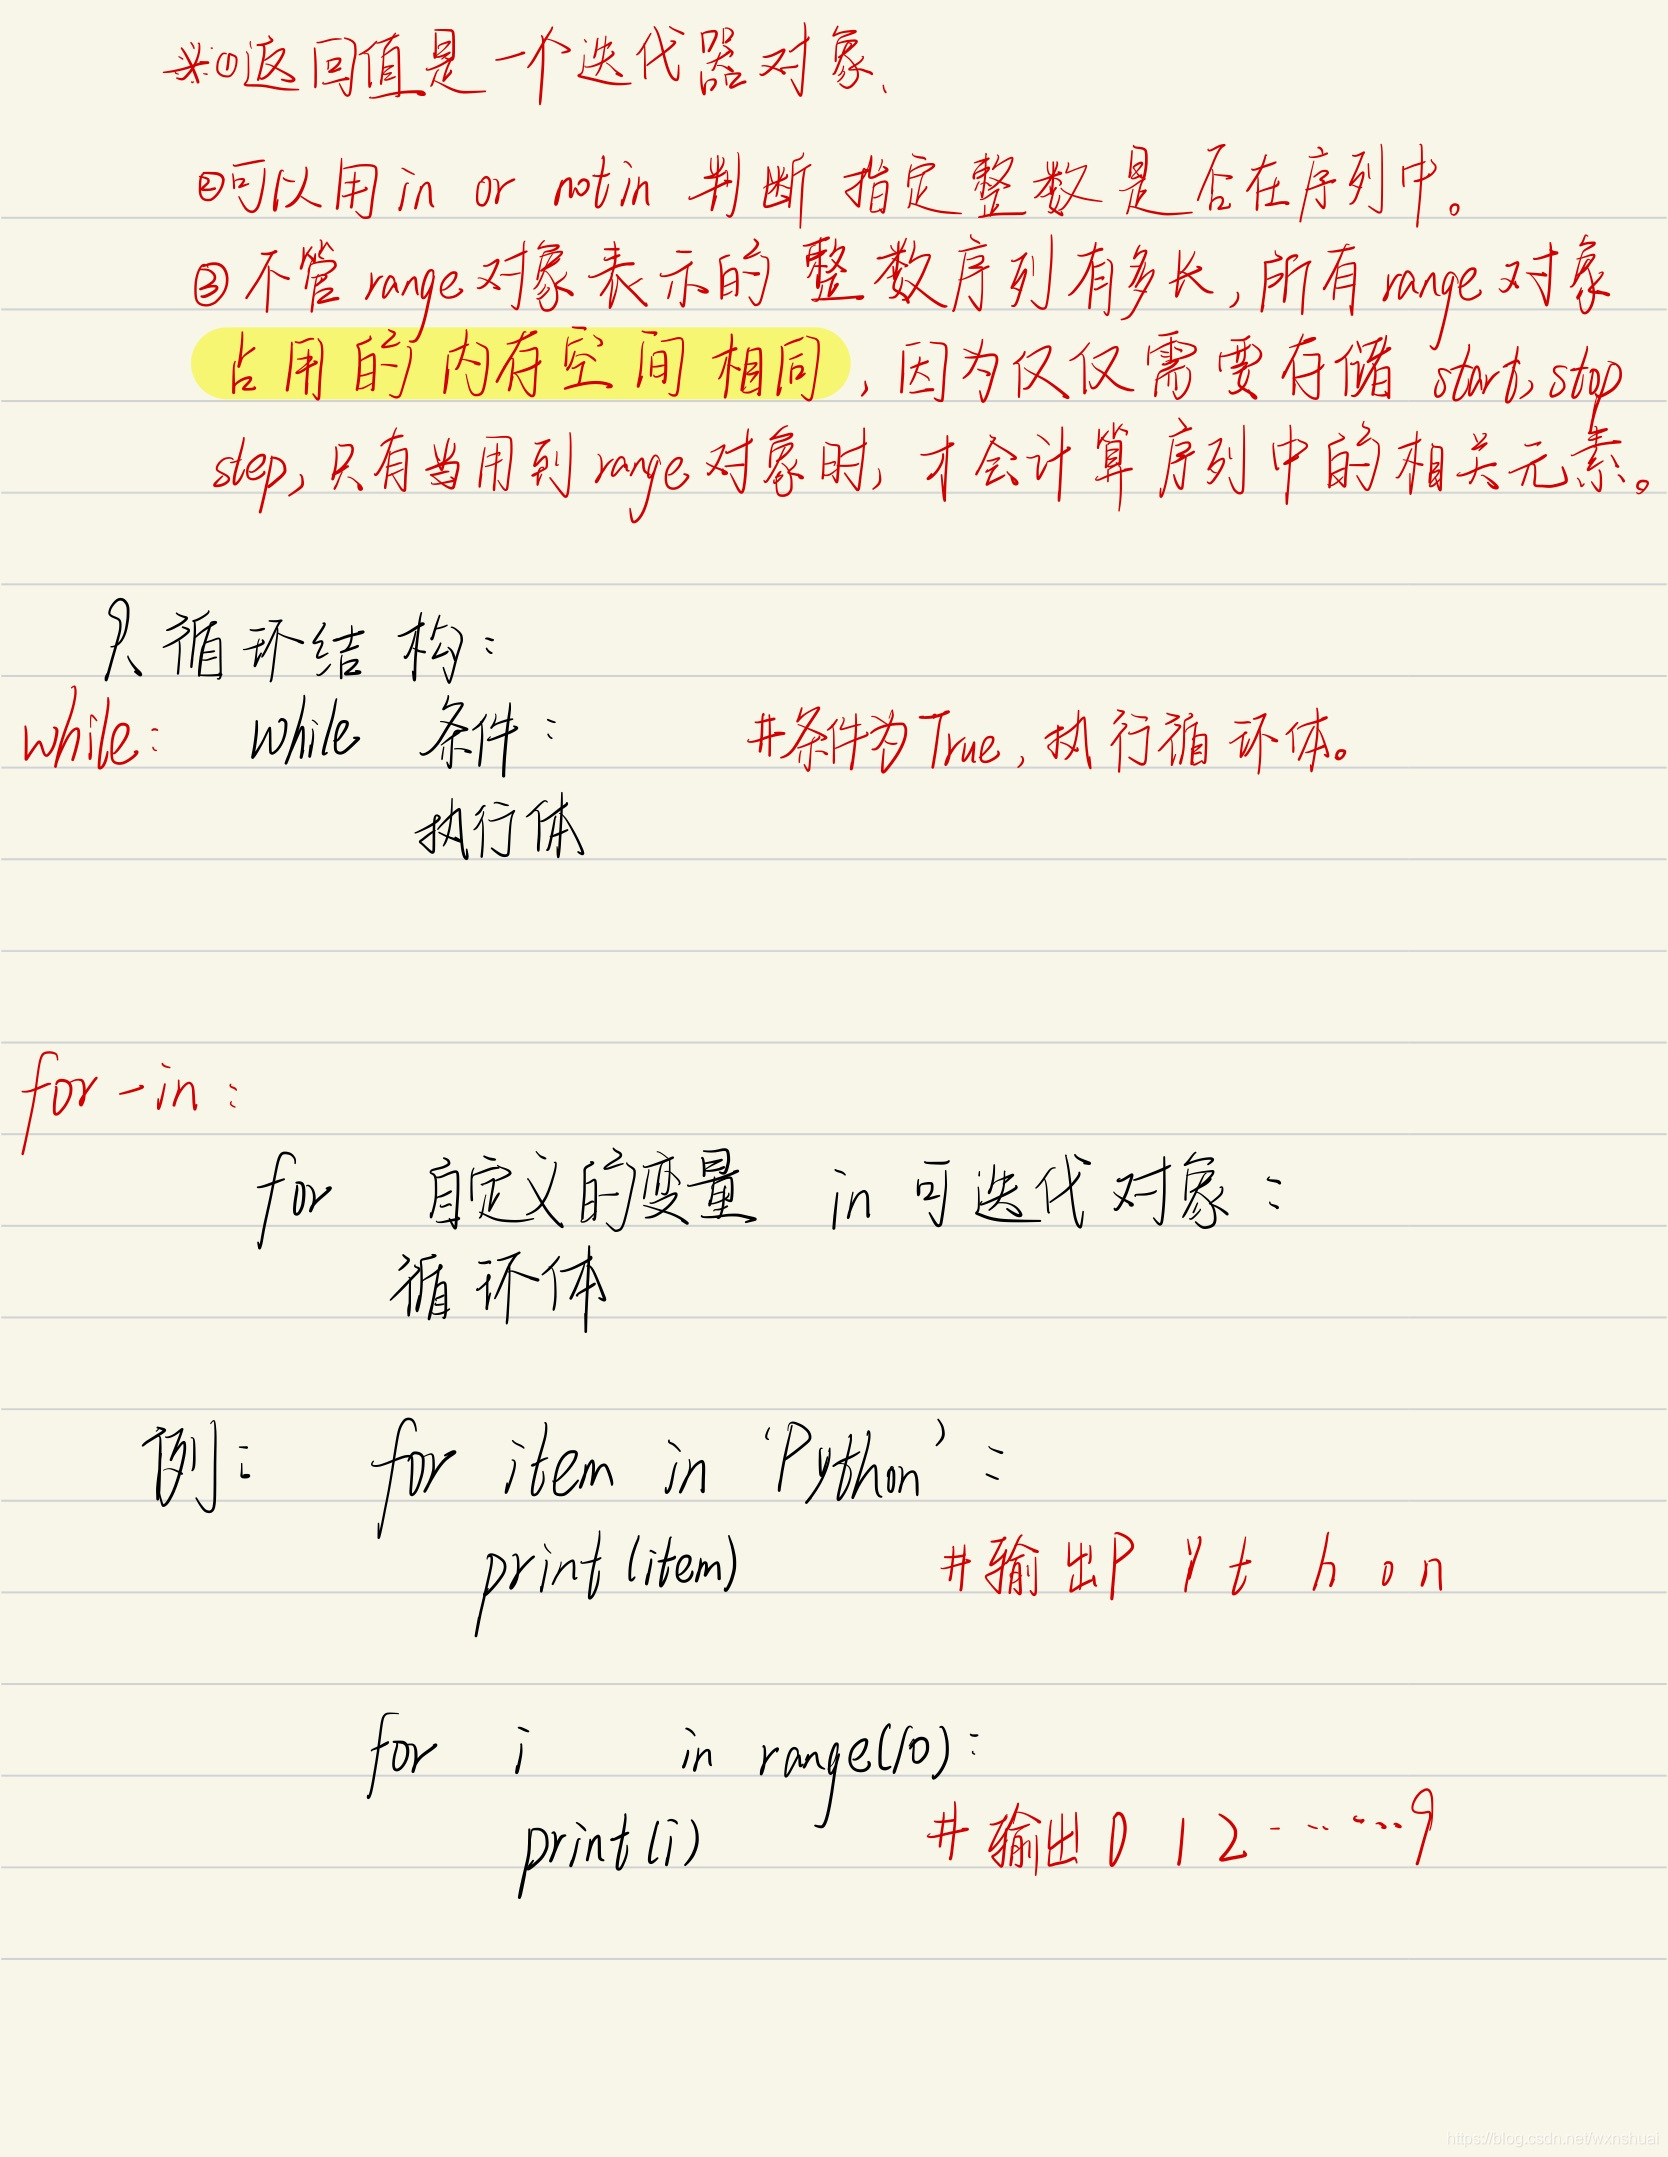 ※①返回值是一个迭代器对象、
②可以用in or not in 判断指定整数是否在序列中。
③不管range对象表示的整数序列有多长,所有range对象
占用的内存空间相同,因为仅仅需要存储 start,stop
step,只有当用到range对象时,才会计算序列中的相关元素。
循环结构:
while: while 条件: #条件为True,执行循环体。
执行体
for-in:
for 自定义的变量 in 可迭代对象:
循环体
例: for item in 'Python':
print(item) #输出P y t h o n
for i in range(10):
print(i) #输出0 1 2 ········9
https://blog.csdn.net/wxnshuai